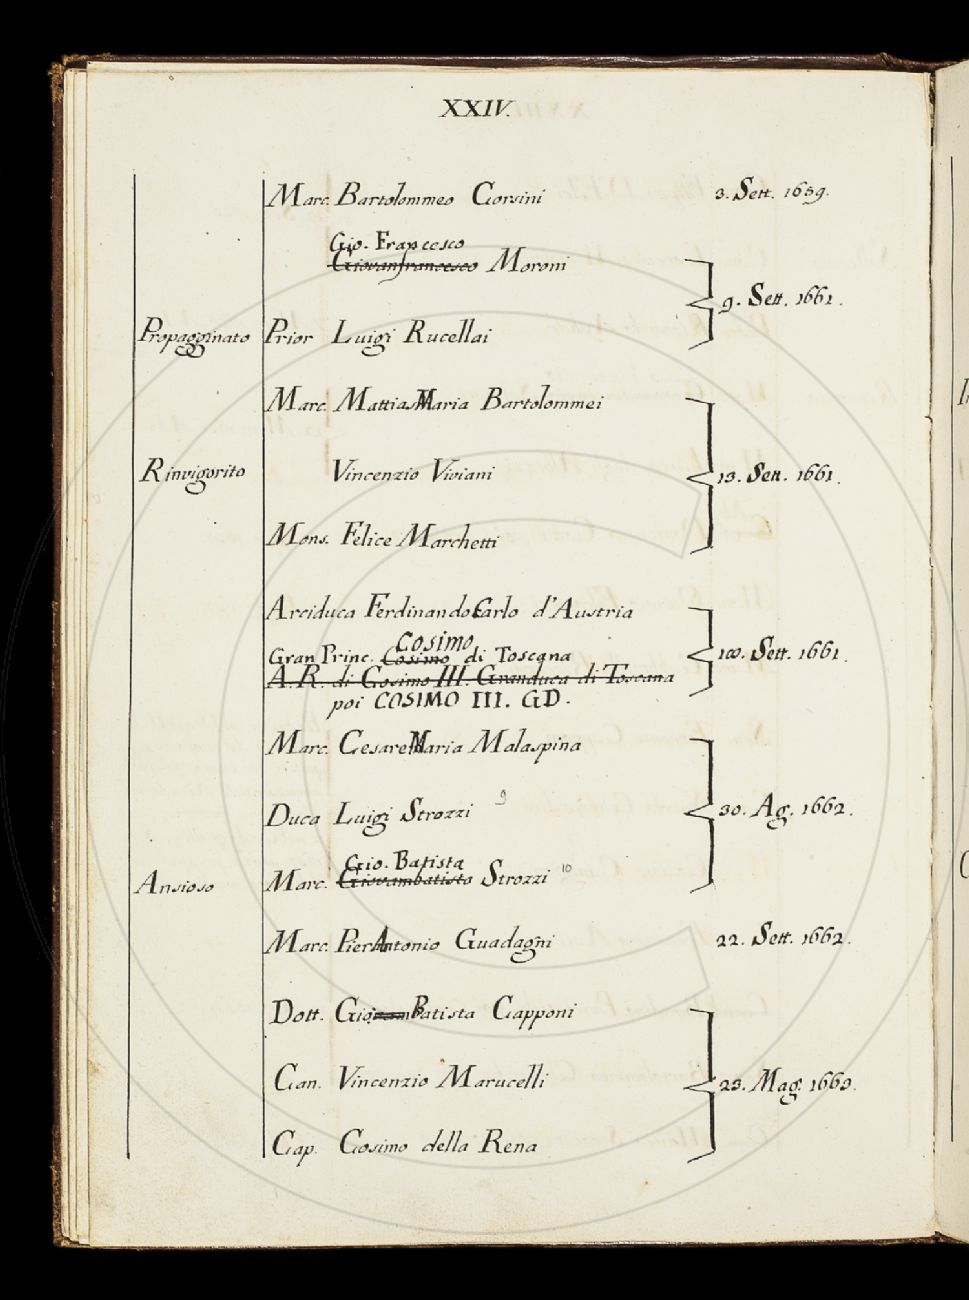 XXIV.
Marc. Bartolommeo Corsini 3. Sett. 1659.
Gio. Francesco
Giovanfrancesco Moroni
9. Sett. 1661.
Propagginato Prior Luigi Rucellai
Marc. Mattias Maria Bartolommei
Rinvigorito Vincenzio Viviani 13. Sett. 1661.
Mons. Felice Marchetti
Arciduca Ferdinando Carlo d'Austria
COSIMO
Gran Princ. Cosimo di Toscana Sett. 1661.
A.R. di Cosimo III. Granduca di Toscana
poi COSIMO III. GD.
Marc. Cesare Maria Malaspina
Duca Luigi Strozzi 9 30. Ag. 1662.
Gio. Batista
Ansioso Marc. Giovambatista Strozzi 10
Marc. Pier Antonio Guadagni 22. Sett. 1662.
Dott. Giovam Batista Capponi
Can. Vincenzio Marucelli 23. Mag. 1663.
Cap. Cosimo della Rena